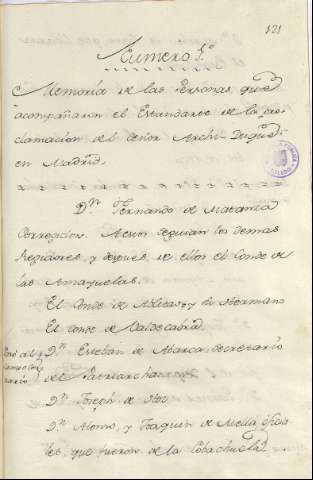 121
Numero 1.º
Memoria de las Personas, que
acompañaron el Estandarte de la pro-
clamacion del Señor Archi-Duque
en Madrid.
Dn. Fernando de Matanza
Corregidor. A cuio seguian los demas
Regidores, y despues de ellos el Conde de
las Amayuelas.
El Conde de y su Hermano
El Conde de Valdecabra.
Dn. Esteban de Abarca, secretario
del Patriarcha
Dn. Joseph de
Dn. Alonso, y Joaquin de Mella, oficia-
les, que fueron de la Cobachuela